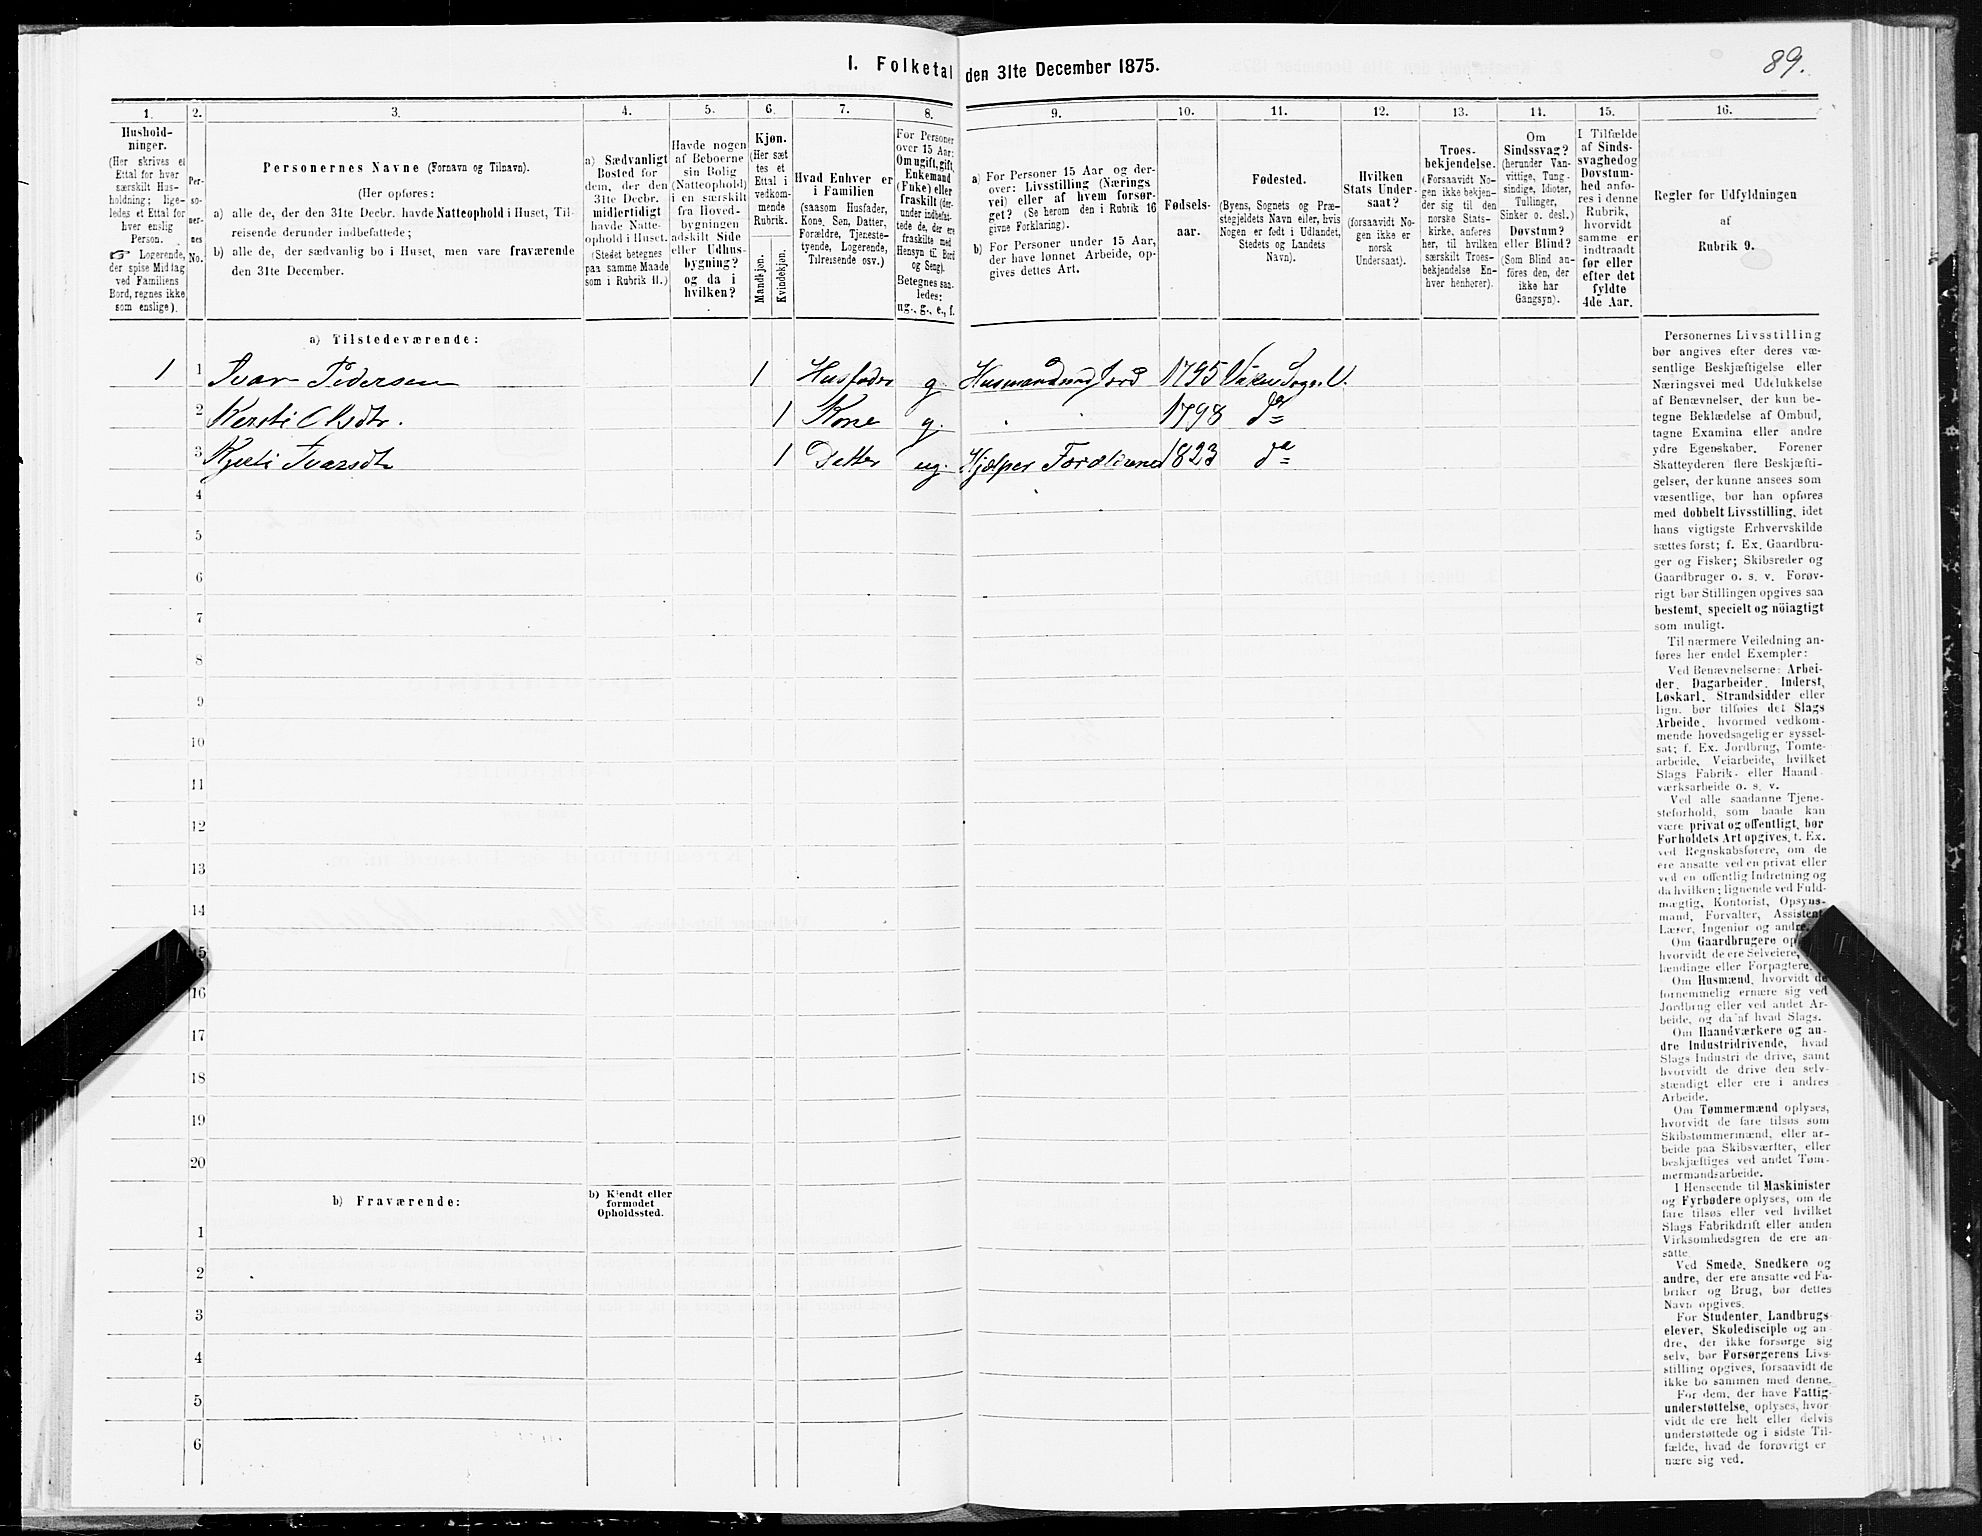 I. Folketal den 31te December 1875.
89.
1. 2. 3. 4. 5. 6. 7. 8. 9. 10. 11. 12. 13. 14. 15. 16.
Hushold-
ninger.
(Her skrives et
Ettal for hver
særskilt Hus-
holdning; lige-
ledes et Ettal for
hver enslig
Person.
☞ Logerende,
der spise Middag
ved Familiens
Bord, regnes ikke
som enslige).
Per-
so-
ner-
nes
No.
Personernes Navne (Fornavn og Tilnavn).
(Her opføres:
a) alle de, der den 31te Decbr. havde Natteophold i Huset, Til-
reisende derunder indbefattede;
b) alle de, der sædvanlig bo i Huset, men vare fraværende
den 31te December.
a) Sædvanligt
Bosted for
dem, der den
31te Decbr.
midlertidigt
havde Natte-
ophold i Huset.
(Stedet betegnes
paa samme Maade
som i Rubrik 11.)
Havde nogen
af Beboerne
sin Bolig
(Natteophold)
i en særskilt
fra Hoved-
bygningen
adskilt Side
eller Udhus-
bygning?
og da i
hvilken?
Kjøn.
(Her sæt-
tes et
Ettal i
vedkom-
mende
Rubrik.
Mandkjøn.
Kvindekjøn.
Hvad Enhver er
i Familien
(saasom Husfader,
Kone, Søn, Datter,
Forældre, Tjeneste-
tyende, Logerende,
Tilreisende osv.)
For Personer
over 15 Aar:
Om ugift, gift,
Enkemand
(Enke) eller
fraskilt (der-
under indbefat-
tede de, der ere
fraskilte med
Hensyn til Bord
og Seng).
Betegnes saa-
ledes:
ug., g., e., f.
a) For Personer 15 Aar og der-
over: Livsstilling (Nærings
vei) eller af hvem forsør-
get? (Se herom den i Rubrik 16
givne Forklaring).
b) For Personer under 15 Aar,
der have lønnet Arbeide, op-
gives dettes Art.
Fødsels-
aar.
Fødested.
(Byens, Sognets og Præ-
stegjeldets Navn eller, hvis
Nogen er født i Udlandet,
Stedets og Landets
Navn).
Hvilken
Stats Under-
saat?
(forsaavidt No-
gen ikke er
norsk
Undersaat).
Troes-
bekjendelse.
(Forsaavidt No-
gen ikke bekjen-
der sig til den
norske Stats-
kirke, anføres
her, til hvilken
særskilt Troes-
bekjendelse En-
hver henhører).
Om
Sindssvag?
(herunder Van-
vittige, Tung-
sindige, Idioter,
Tullinger,
Sinker o. desl.)
Døvstum?
eller Blind?
(Som Blind an-
føres den, der
ikke har
Gangsyn).
I Tilfælde
af Sinds-
svaghed og
Døvstum-
hed anfø-
res i denne
Rubrik,
hvorvidt
samme er
indtraadt
før eller
efter det
fyldte
4de Aar.
Regler for Udfyldningen
af
Rubrik 9.
a) Tilstedeværende:
1 1 Ivar Pedersen 1 Husfader g. Husmand med Jord 1795
2 Kersti Olsdtr. 1 Kone g. 1798 do
3 Kjeti Ivarsdt 1 Datter ug. Hjælper Forældrene 1823 do
4
5
6
7
8
9
10
11
12
13
14
15
16
17
18
19
20
b) Fraværende:
b) Kjendt eller
formodet
Opholdssted.
1
2
3
4
5
6
Personernes Livsstilling
bør angives efter deres væ-
sentlige Beskjæftigelse eller
Næringsvei med Udelukkelse
af Benævnelser, der kun be-
tegne Beklædelse af Ombud,
tagne Examina eller andre
ydre Egenskaber. Forener
Skatteyderen flere Beskjæfti-
gelser, der kunne ansees som
væsentlige, bør han opføres
med dobbelt Livsstilling, idet
hans vigtigste Erhvervskilde
sættes først; f. Ex. Gaardbru-
ger og Fisker; Skibsreder og
Gaardbruger o. s. v. Forøv-
rigt bør Stillingen opgives saa
bestemt, specielt og nöiagtigt
som muligt.
Til nærmere Veiledning an-
føres her endel Exempler:
Ved Benævnelserne: Arbei-
der, Dagarbeider, Inderst,
Løskarl, Strandsidder eller
lign. bør tilføies det Slags
Arbeide, hvormed vedkom-
mende hovedsagelig er syssel-
sat; f. Ex. Jordbrug, Tomte-
arbeide, Veiarbeide, hvilket
Slags Fabrik- eller Haand-
værksarbeide o. s. v.
Ved alle saadanne Tjene-
steforhold, som baade kan
være privat og offentligt, bør
Forholdets Art opgives, t. Ex.
ved Regnskabsførere, om de
ere ansatte ved en privat eller
ved en offentlig Indretning og
da hvilken; lignende ved Fuld-
mægtig, Kontorist, Opsyns-
mand, Forvalter, Assistent,
Lærer, Ingeniør og andre.
Om Gaardbrugere op
hvorvidt de ere Selveiere,
lændinge eller Forpagtere.
Om Husmænd, hvorvidt de
fornemmelig ernære sig ved
Jordbrug eller ved andet Ar-
beide, og da af hvad Slags.
Om Haandværkere og an-
dre Industridrivende, hvad
Slags Industri de drive, samt
hvorvidt de drive den selv-
stændigt eller ere i andres
Arbeide.
Om Tømmermænd oplyses,
hvorvidt de fare tilsøs som
Skibstømmermænd, eller ar-
beide paa Skibsværfter, eller
beskjæftiges ved andet Tøm-
mermandsarbeide.
I Henseende til Maskinister
og Fyrbødere oplyses, om de
fare tilsøs eller ved hvilket
Slags Fabrikdrift eller anden
Virksomhedsgren de ere an-
satte.
Ved Smede, Snedkere og
andre, der ere ansatte ved Fa-
briker og Brug, bør dettes
Navn opgives.
For Studenter, Landbrugs-
elever, Skoledisciple og an-
dre, der ikke forsørge sig
selv, bør Forsørgerens Livs-
stilling opgives, forsaavidt de
ikke bo sammen med denne.
For dem, der have Fattig-
understøttelse, oplyses, hvor-
vidt de ere helt eller delvis
understøttede og i sidste Til-
fælde, hvad de forøvrigt er
nære sig ved.